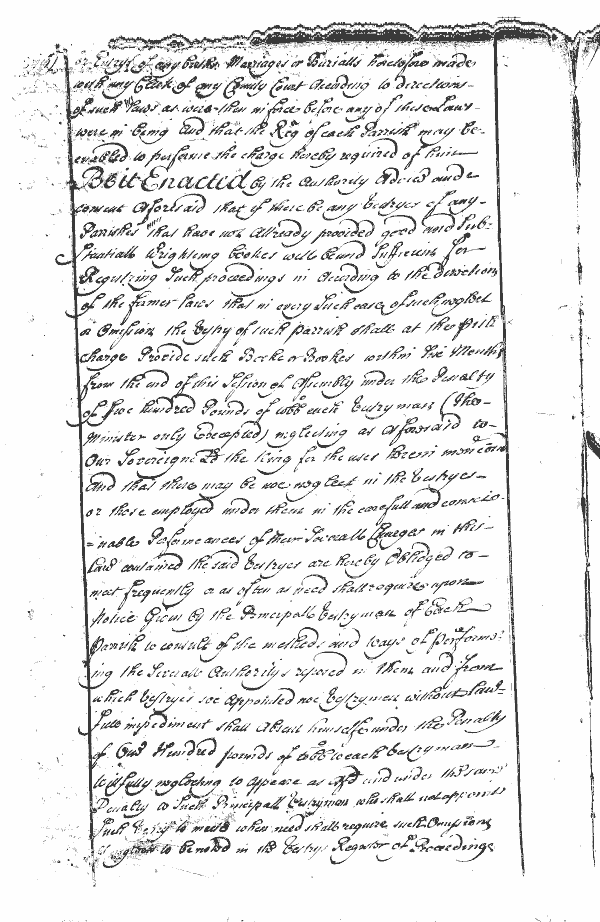 or Entrys of any Births Marriages or Burialls heretofore made
with any Clerk of any County Court According to directions
of such Laws as were then in force before any of these Laws
were in being And that the Reg of each Parrish may be
enabled to performe the charge hereby required of him
Be it Enacted by the Authority Advice and
consent Aforesaid that if there be any Vestrys of any
Parrishes that have not Already provided good and Sub-
stantiall Writeing bookes well bound Sufficient for
Registring Such proceedings in According to the direction
of the former laws that in every Such case of such neglect
or Omission the Vestry of such parrish shall at the prsh
charge Provide such Booke or Bookes within Six Months
from the end of this Session of Assembly under the Penalty
of five hundred Pounds of tobb each Vestryman (the
Minister only Excepted) neglecting as Aforesaid to
Our Sovereigne Ld the King for the uses herein menc̃oned
And that there may be noe neglect in the Vestryes
or those employed under them in the carefull and conscio-
=nable Performances of their Severall Charges in this
Law contained the said Vestryes are hereby Obliged to
meet frequently or as often as need shall require upon
Notice Given by the Principall Vestryman of Each
Parrish to consult of the methods and ways of performe-
ing the Severall Authoritys reposed in them and from
which Vestryes soe Appointed noe Vestryman without Law-
full impediment shall Absent himselfe under the Penalty
of One Hundred pounds of tobb to each Vestryman
Willfully neglecting to Appeare as Afd and under the same
Penalty to Such Principall Vestryman who shall not appoint
Such Vestry to meete when need shall require such Omissions
neglects to be noted in the Vestrys Register of Proceedings